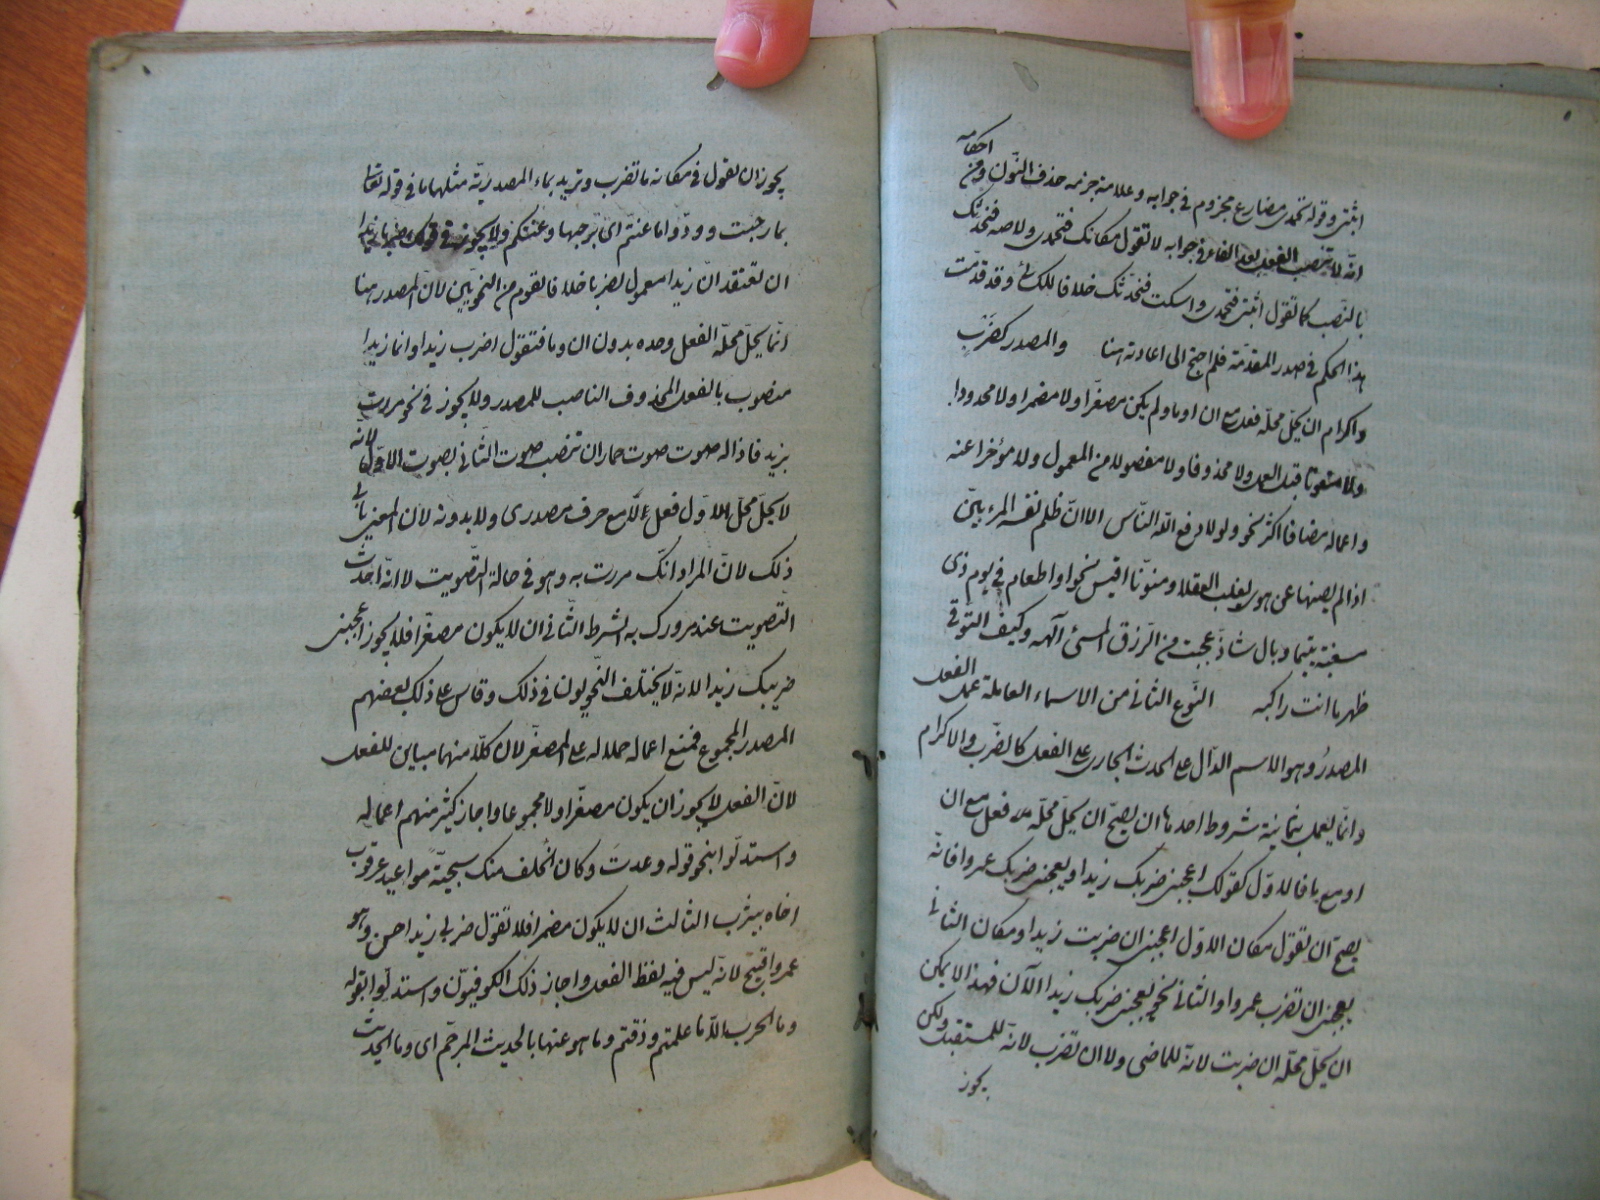 احكامه
اثبتى وقوله تحمدى مضارع مجزوم فى جوابه وعلامة جزمه حذف النّون ومن
انّه لا ينصب الفعل بعد الفاء فى جوابه لا تقول مكانك فتحمدى ولا صه فنحدّثك
بالنّصب كما تقول اثبتى فتحمدى واسكت فنحدّثك خلافا للكسائى وقد قدّمت
هذا الحكم فى صدر المقدّمة فلم احتج الى اعادته هنا والمصدر كضَرْبٍ
واكرام ان يحلّ محلّه فعل مع ان او ما ولم يكن مصغّرا ولا مضمرا ولا محدودا
ولا منعوتا قبل العمل ولا محذوفا ولا مفصولا من المعمول ولا مؤخرا عنه
واعماله مضافا اكثر نحو ولولا دفع اللّه النّاس الا انّ ظلم نفسه المرء بيّن
اذا لم يصنها عن هوى يغلب العقلا ومنوّنا اقيس نحو او اطعام فى يوم ذى
مسغبة يتيما وبال شاذّ عجبت من الرّزق المسئ الهه وكيف التوقّى
ظهر ما انت راكبه النّوع الثانى من الاسماء العاملة عمل الفعل
المصدرُ وهو الاسم الدّال على الحدث الجارى على الفعل كالضّرب والاكرام
وانّما يعمل بثمانية شروط احدها ان يصحّ ان يحلّ محلّه فعل مع ان
او مع ما فالاوّل كقولك اعجبنى ضربك زيدا ويعجبنى ضربك عمروا فانّه
يصحّ ان تقول مكان الاوّل اعجبنى ان ضربت زيدا ومكان الثانى
يعجبنى ان تضرب عمروا والثانى نحو يعجبنى ضربك زيدا الآن فهذا لا يمكن
ان يحلّ محلّه ان ضربت لانّه للماضى ولا ان تضرب لانّه للمستقبل ولكن
يجوز
يجوز ان تقول فى مكانه ما تضرب وتريد بماء المصدريّة مثلها ما فى قوله تعالى
بما رحبت وودّوا ما عنتّم اى برحبها وعنتكم ولا يجوز فى قولك ضربا زيدا
ان تعتقد انّ زيدا معمول لضربا خلافا لقوم من النحويّين لانّ المصدر هنا
انّما يحلّ محلّه الفعل وحده بدون ان وما فتقول اضرب زيدا وانما زيدا
منصوب بالفعل المحذوف الناصب للمصدر ولا يجوز فى نحو مررت
بزيد فاذا له صوت صوت حمار ان تنصب صوت الثّانى بصوت الاوّل لانّه
لا يحلّ محلّ الاوّل فعل لا مع حرف مصدرى ولا بدونه لانّ المعنى يابى
ذلك لانّ المراد انّك مررت به وهو فى حالة التّصويت لا انّه احدث
التصويت عند مرورك به الشرط الثّانى ان لا يكون مصغّرا فلا يجوز اعجبنى
ضريبك زيدا لانه لا يختلف النّحويون فى ذلك وقاس على ذلك بعضهم
المصدر المجموع فمنع اعماله حملا له على المصغّر لان كلّا منهما مباين للفعل
لانّ الفعل لا يجوز ان يكون مصغّرا ولا مجموعا واجاز كثير منهم اعماله
واستدلّوا بنحو قوله وعدتَ وكان الخلف منك سجيّةً مواعيد عرقوب
اخاه بيثرب الثالث ان لا يكون مضمرا فلا تقول ضربى زيدا حسن وهو
عمروا قبيح لانّه ليس فيه لفظ الفعل واجاز ذلك الكوفيّون واستدلّوا بقوله
وما الحرب الّا ما علمتم وذقتم وما هو عنها بالحديث المرجّم اى وما الحديث